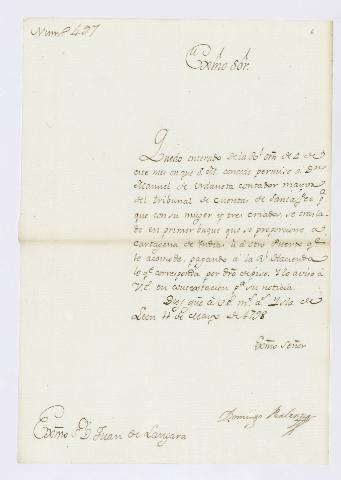 Num.º 437
Exmo Sor.
Quedo enterado de la Rl. orn de 4 de
este mes en que S. M. concede permiso a Dn
Manuel de Urdaneta contador mayor
del tribunal de Cuentas de Santa fee pª
que con su muger y tres criados se trasla
de en primer buque que se proporcione a
Cartagena de Indias ú a otro Puerto qe
le acomode, pagando a la Rl Hacienda
lo qe corresponda por dro de piso. Y lo aviso a
V. E. en contextacion pª su noticia.
Dios gue á V. E. ms as Isla de
Leon de Marzo de 1798
Exmo Señor
Domingo
Exmo Sr. D. Juan de Langara